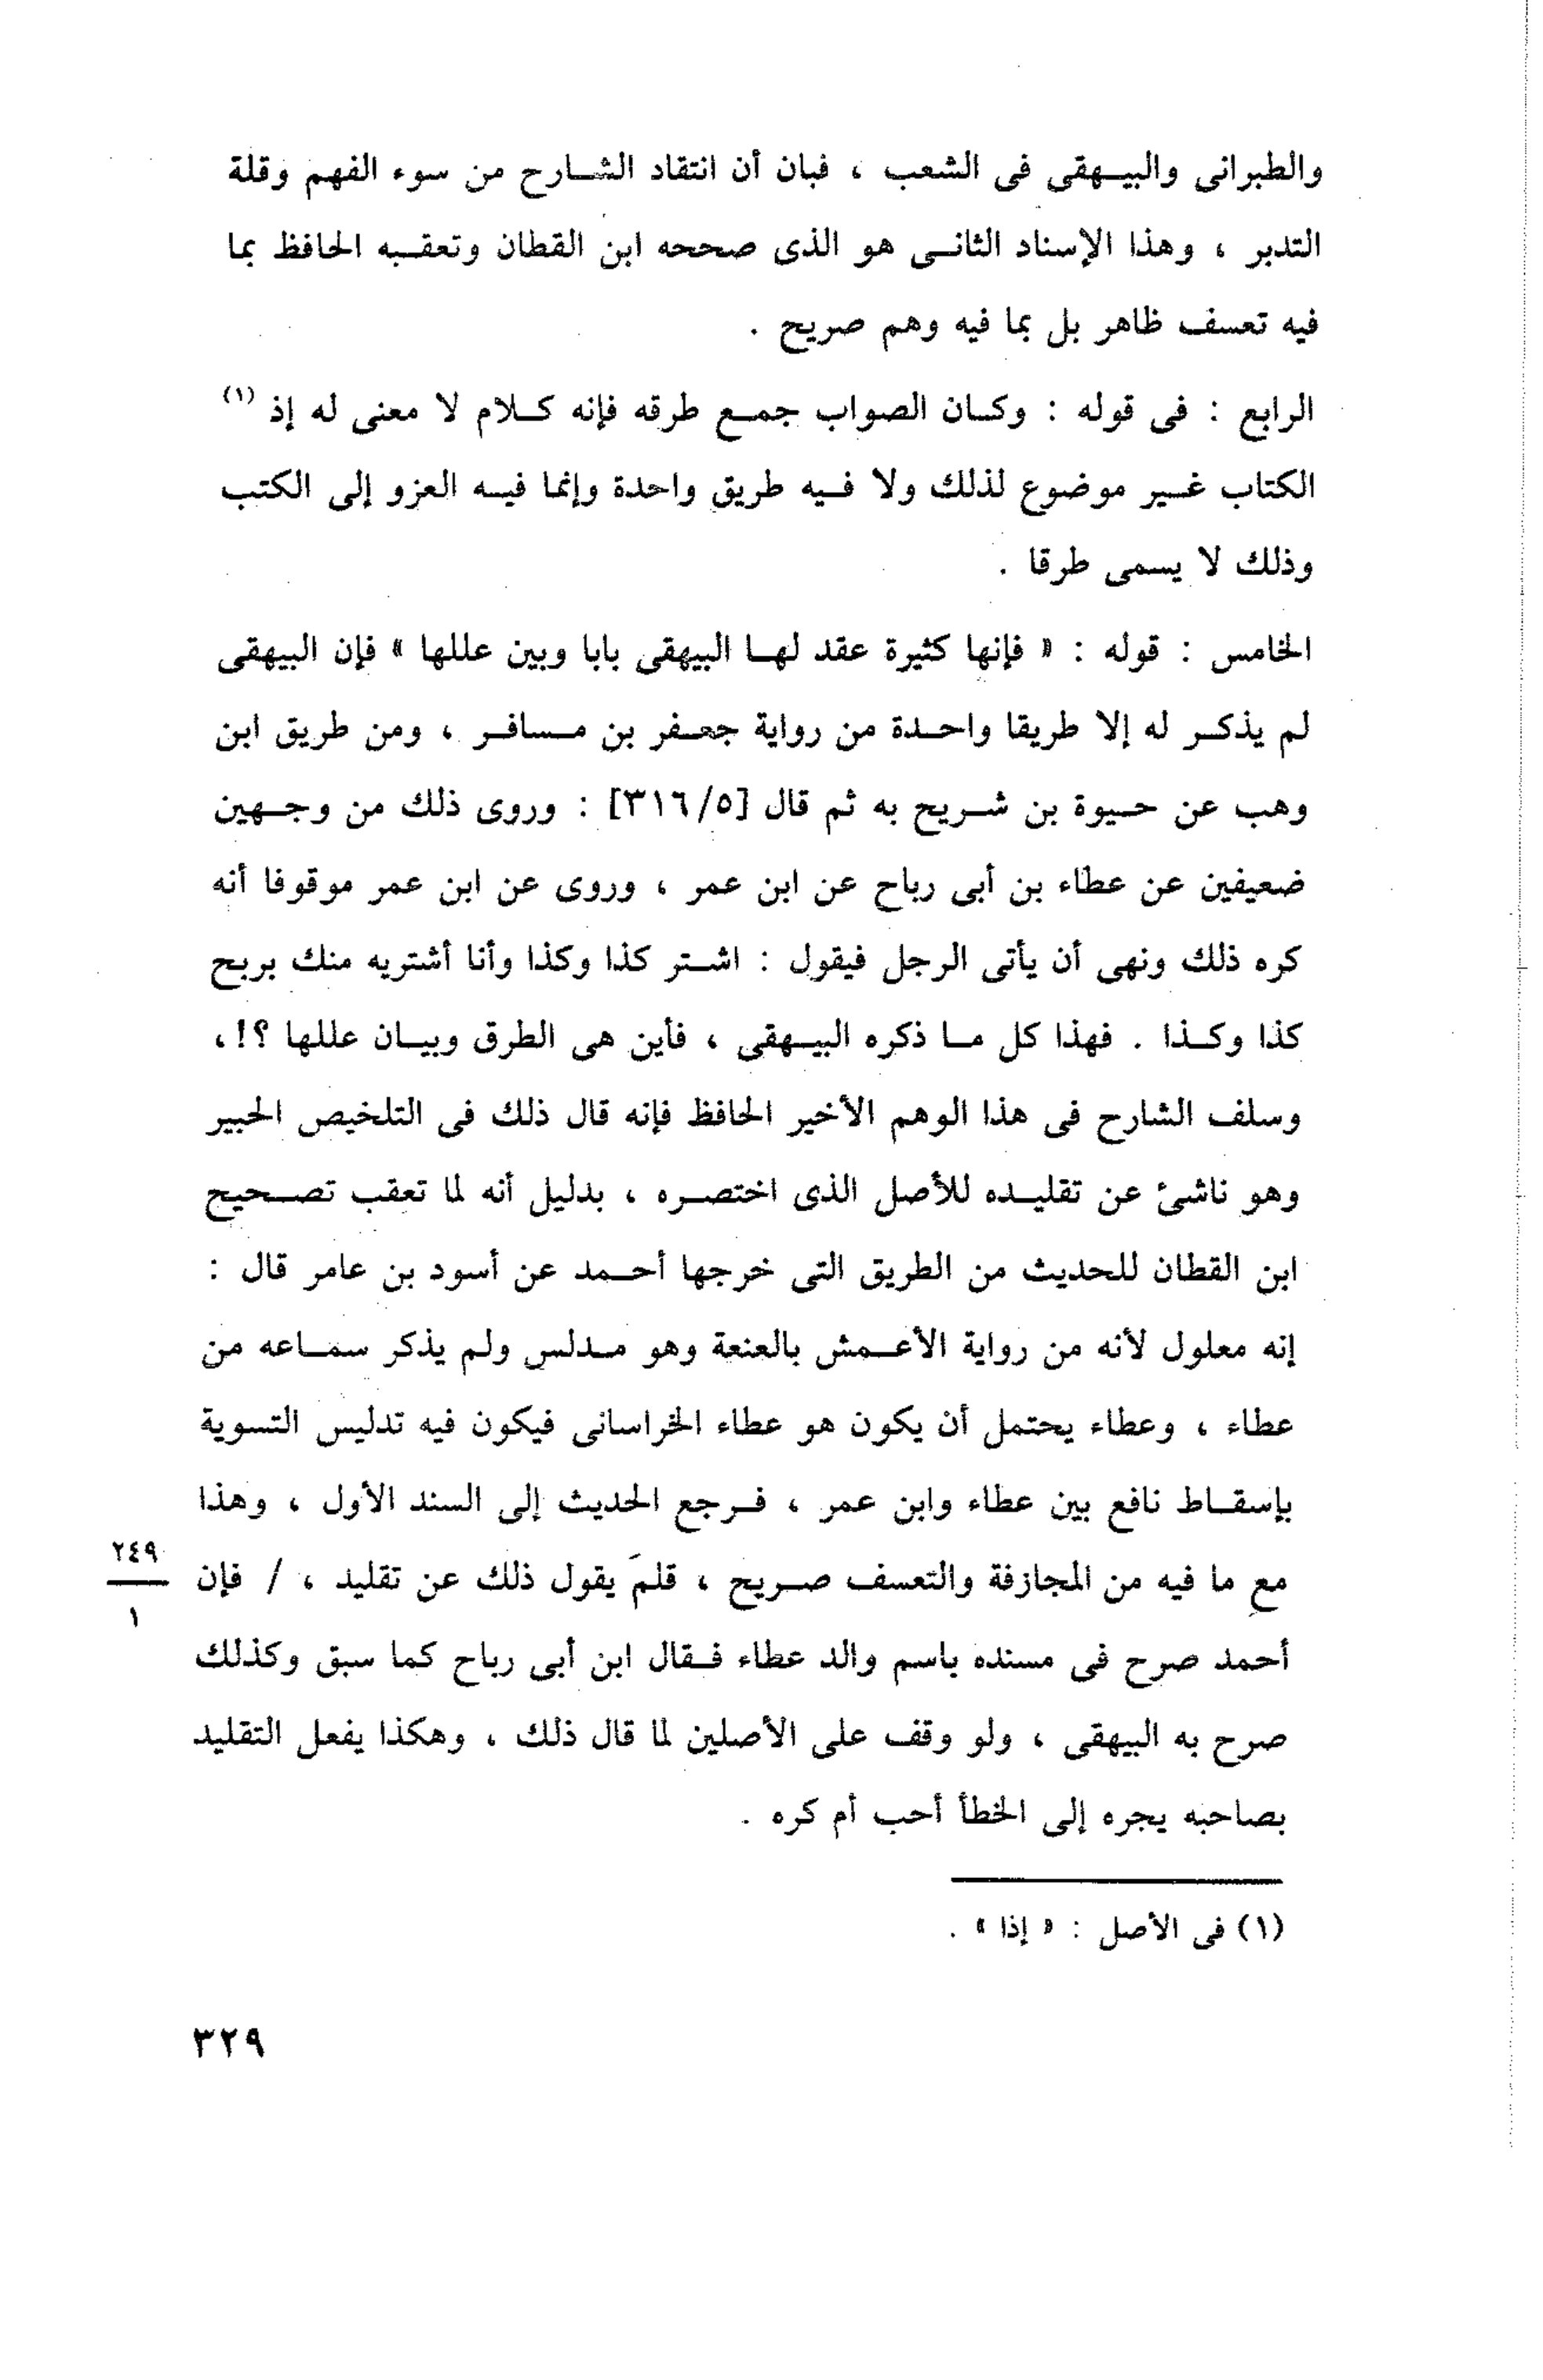 والطبرانى والبيهقى فى الشعب ، فبان أن انتقاد الشارح من سوء الفهم وقلة
التدبر ، وهذا الإسناد الثانى هو الذى صححه ابن القطان وتعقبه الحافظ بما
فيه تعسف ظاهر بل بما فيه وهم صريح .
الرابع : فى قوله : وكان الصواب جمع طرقه فإنه كلام لا معنى له إذ (١)
الكتاب غير موضوع لذلك ولا فيه طريق واحدة وإنما فيه العزو إلى الكتب
وذلك لا يسمى طرقا .
الخامس : قوله : « فإنها كثيرة عقد لها البيهقى بابا وبين عللها » فإن البيهقى
لم يذكر له إلا طريقا واحدة من رواية جعفر بن مسافر ، ومن طريق ابن
وهب عن حيوة بن شريح به ثم قال [٣١٦/٥] : وروى ذلك من وجهين
ضعيفين عن عطاء بن أبى رباح عن ابن عمر ، وروى عن ابن عمر موقوفا أنه
كره ذلك ونهى أن يأتى الرجل فيقول : اشتر كذا وكذا وأنا أشتريه منك بربح
كذا وكذا . فهذا كل ما ذكره البيهقى ، فأين هى الطرق وبيان عللها ؟! ،
وسلف الشارح فى هذا الوهم الأخير الحافظ فإنه قال ذلك فى التلخيص الحبير
وهو ناشئ عن تقليده للأصل الذى اختصره ، بدليل أنه لما تعقب تصحيح
ابن القطان للحديث من الطريق التى خرجها أحمد عن أسود بن عامر قال :
إنه معلول لأنه من رواية الأعمش بالعنعة وهو مدلس ولم يذكر سماعه من
عطاء ، وعطاء يحتمل أن يكون هو عطاء الخراسانى فيكون فيه تدليس التسوية
بإسقاط نافع بين عطاء وابن عمر ، فرجع الحديث إلى السند الأول ، وهذا
مع ما فيه من المجازفة والتعسف صريح ، قلمَ يقول ذلك عن تقليد ، / فإن
٢٤٩
١
أحمد صرح فى مسنده باسم والد عطاء فقال ابن أبى رباح كما سبق وكذلك
صرح به البيهقى ، ولو وقف على الأصلين لما قال ذلك ، وهكذا يفعل التقليد
بصاحبه يجره إلى الخطأ أحب أم كره .
(١) فى الأصل : « إذا » .
٣٢٩